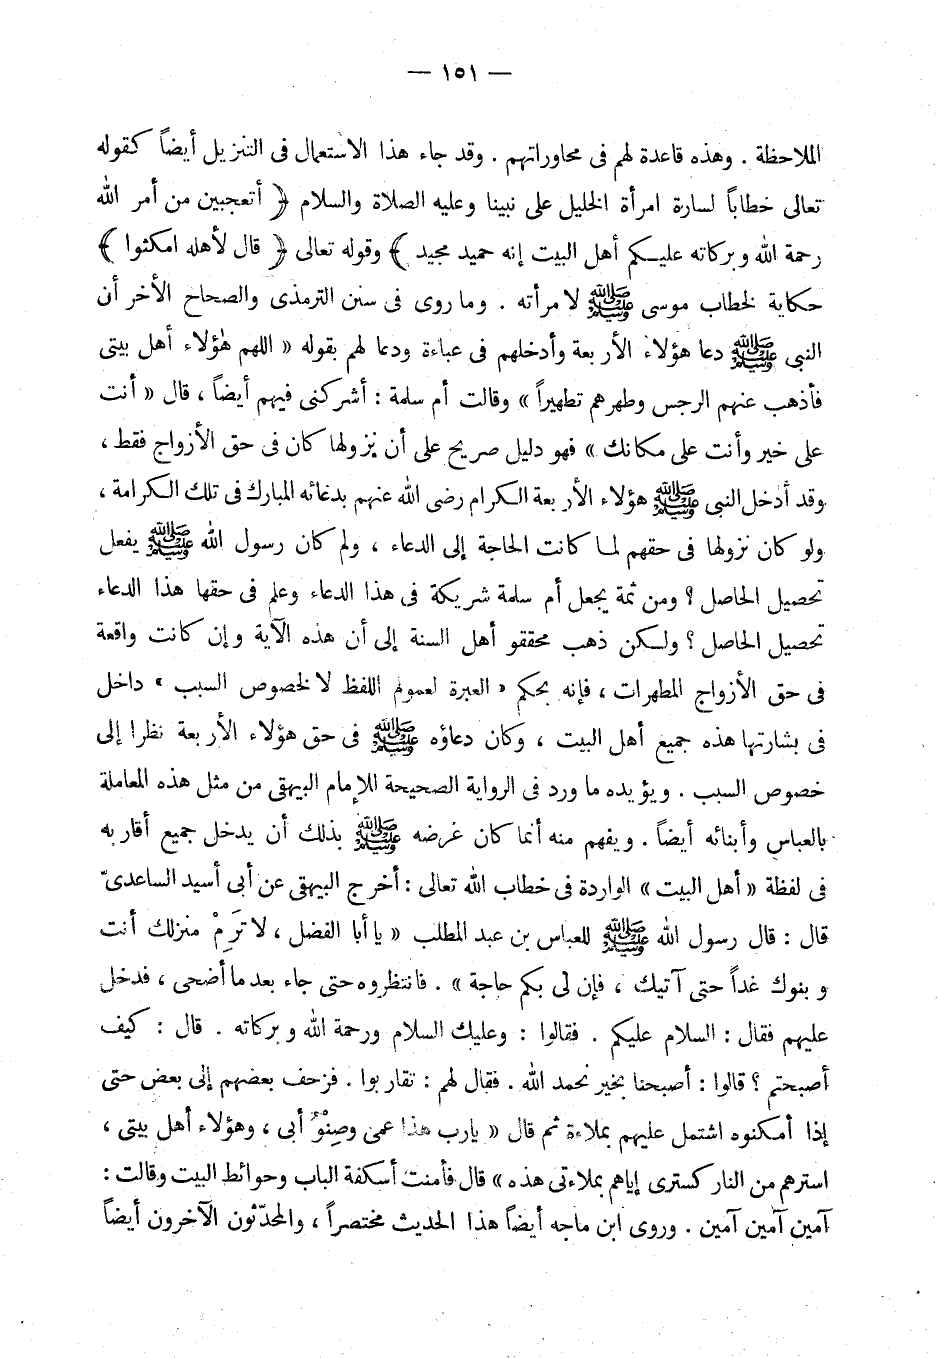 — ١٥١ —
الملاحظة . وهذه قاعدة لهم فى محاوراتهم . وقد جاء هذا الاستعمال فى التنزيل أيضاً كقوله
تعالى خطاباً لسارة امرأة الخليل على نبينا وعليه الصلاة والسلام ﴿ أتعجبين من أمر الله
رحمة الله وبركاته عليكم أهل البيت إنه حميد مجيد ﴾ وقوله تعالى ﴿ قال لأهله امكثوا ﴾
حكاية لخطاب موسى ﷺ لامرأته . وما روى فى سنن الترمذى والصحاح الأخر أن
النبى ﷺ دعا هؤلاء الأربعة وأدخلهم فى عباءة ودعا لهم بقوله « اللهم هٰؤلاء أهل بيتى
فأذهب عنهم الرجس وطهرهم تطهيراً » وقالت أم سلمة : أشركنى فيهم أيضاً ، قال « أنت
على خير وأنت على مكانك » فهو دليل صريح على أن نزولها كان فى حق الأزواج فقط ،
وقد أدخل النبى ﷺ هؤلاء الأربعة الكرام رضى الله عنهم بدعائه المبارك فى تلك الكرامة ،
ولو كان نزولها فى حقهم لما كانت الحاجة إلى الدعاء ، ولم كان رسول الله ﷺ يفعل
تحصيل الحاصل ؟ ومن ثمة يجعل أم سلمة شريكة فى هذا الدعاء وعلم فى حقها هذا الدعاء
تحصيل الحاصل ؟ ولكن ذهب محققو أهل السنة إلى أن هذه الآية وإن كانت واقعة
فى حق الأزواج المطهرات ، فإنه بحكم « العبرة لعموم اللفظ لا لخصوص السبب » داخل
فى بشارتها هذه جميع أهل البيت ، وكان دعاؤه ﷺ فى حق هؤلاء الأربعة نظرا إلى
خصوص السبب . ويؤيده ما ورد فى الرواية الصحيحة للإمام البيهقى من مثل هذه المعاملة
بالعباس وأبنائه أيضاً . ويفهم منه أنما كان غرضه ﷺ بذلك أن يدخل جميع أقاربه
فى لفظة « أهل البيت » الواردة فى خطاب الله تعالى : أخرج البيهقى عن أبى أسيد الساعدىّ
قال : قال رسول الله ﷺ للعباس بن عبد المطلب « يا أبا الفضل ، لا تَرِمْ منزلك أنت
وبنوك غداً حتى آتيك ، فإن لى بكم حاجة » . فانتظروه حتى جاء بعد ما أضحى ، فدخل
عليهم فقال : السلام عليكم . فقالوا : وعليك السلام ورحمة الله وبركاته . قال : كيف
أصبحتم ؟ قالوا : أصبحنا بخير نحمد الله . فقال لهم : تقاربوا . فزحف بعضهم إلى بعض حتى
إذا أمكنوه اشتمل عليهم بملاءة ثم قال « يارب هذا عمى وصِنْوُ أبى ، وهؤلاء أهل بيتى ،
استرهم من النار كسترى إياهم بملاءتى هذه » قال فأمنت أسكفة الباب وحوائط البيت وقالت :
آمين آمين آمين . وروى ابن ماجه أيضاً هذا الحديث مختصراً ، والمحدّثون الآخرون أيضاً